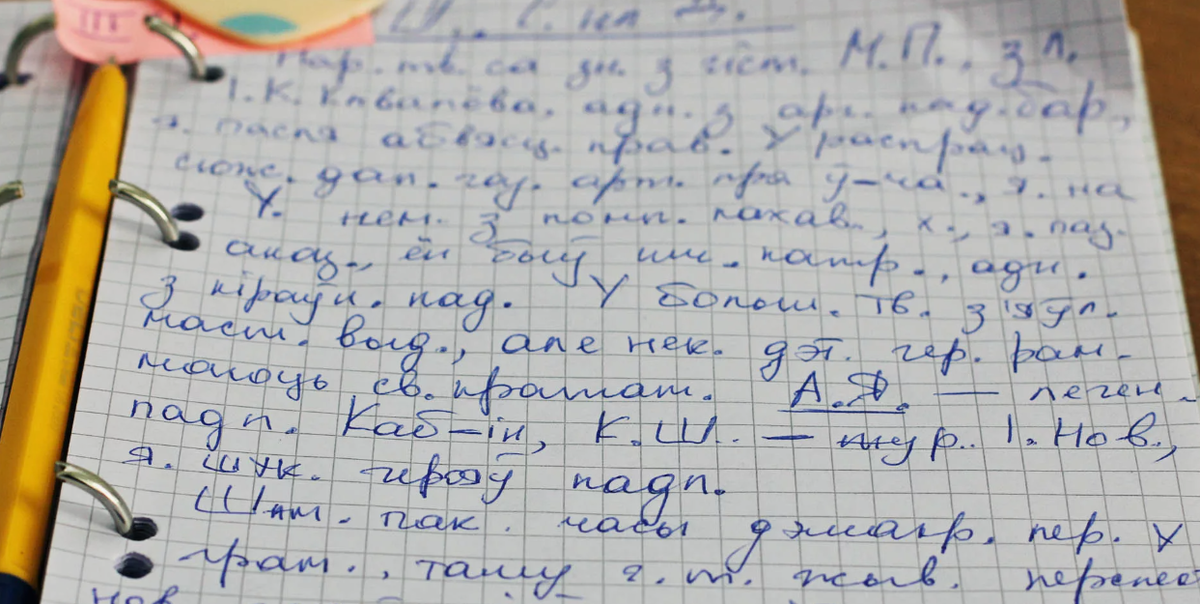 Нар. тв. са зн. з гіст. М.П., з л.
І.К. Кавалёва. адн. з арг. пад. бар,
я. пасля абвясц. прав. У распрац.
сюж. дап. газ. арт. пра ў-ча., я. на
У. нем. з помп. пахав., х., я. паз.
аказ., ён быў шч. патр., адн.
з кіраўн. пад. У больш. тв. з'яўл.
маст. выд., але нек. дэт. гер. рам.
маюць св. пратат. А.Д. — леген.
падп. Каб-ін, К.Ш. — жур. І. Нов.,
я. шук. герояў падп.
Шмт. пак. часы дэмакр. пер. у
грам., таму г. т. жыв. перапес
Нов